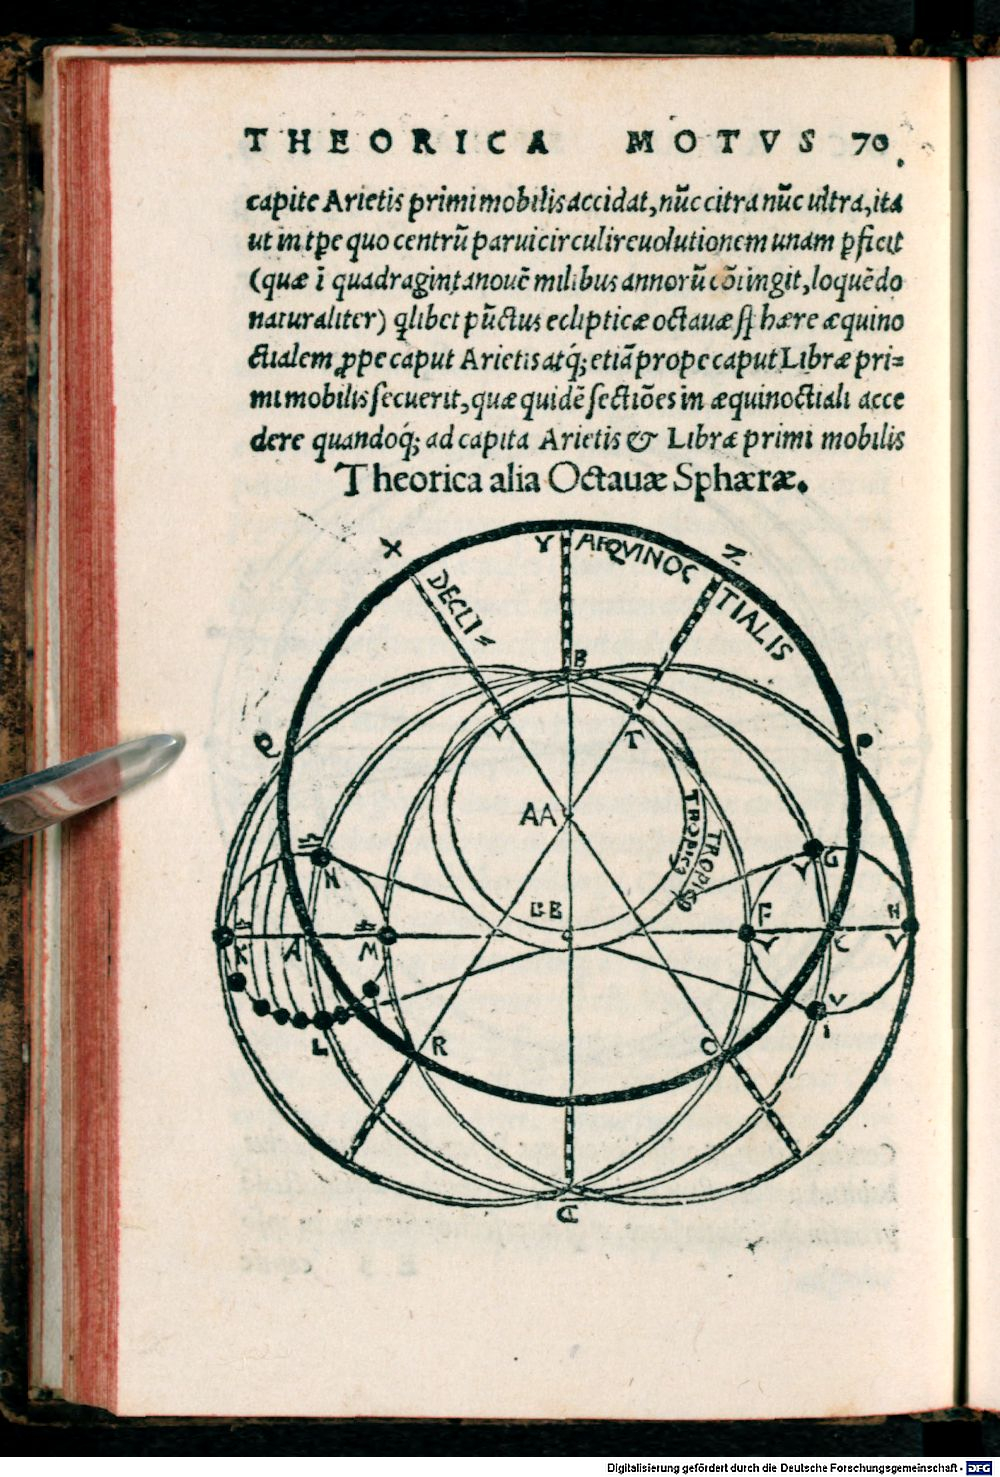 THEORICA MOTVS 70
capite Arietis primi mobilis accidat, nũc citra nũc ultra, ita
ut in tp̃e quo centrũ parui circuli reuolutionem unam ꝑficit
(quæ ĩ quadragintanouẽ milibus annorũ cõtingit, loquẽdo
naturaliter) qlibet pũctus eclipticæ octauæ sphære æquino
ctialem ꝓpe caput Arietis atq́; etiã prope caput Libræ pri=
mi mobilis secuerit, quæ quidẽ sectiões in æquinoctiali acce
dere quandoq́; ad capita Arietis & Libræ primi mobilis
Theorica alia Octauæ Sphæræ.
X Y AEQVINOC Z
DECLI= TIALIS
B
Q V T P
AA TROPICO
TROPICO
N G
BB F H
K A M C
V
L R O I
E
Digitalisierung gefördert durch die Deutsche Forschungsgemeinschaft - DFG